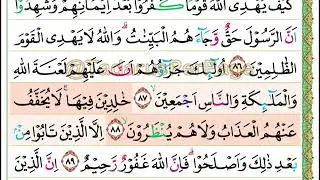 كَيْفَ يَهْدِى اللّٰهُ قَوْمًا كَفَرُوْا بَعْدَ اِيْمَانِهِمْ وَشَهِدُوْٓا
اَنَّ الرَّسُوْلَ حَقٌّ وَّجَآءَهُمُ الْبَيِّنٰتُ ۗ وَاللّٰهُ لَا يَهْدِى الْقَوْمَ
الظّٰلِمِيْنَ ٨٦ اُولٰۤىِٕكَ جَزَآؤُهُمْ اَنَّ عَلَيْهِمْ لَعْنَةَ اللّٰهِ
وَالْمَلٰۤىِٕكَةِ وَالنَّاسِ اَجْمَعِيْنَ ٨٧ خٰلِدِيْنَ فِيْهَا ۚ لَا يُخَفَّفُ
عَنْهُمُ الْعَذَابُ وَلَا هُمْ يُنْظَرُوْنَ ٨٨ اِلَّا الَّذِيْنَ تَابُوْا مِنْۢ
بَعْدِ ذٰلِكَ وَاَصْلَحُوْا ۗ فَاِنَّ اللّٰهَ غَفُوْرٌ رَّحِيْمٌ ٨٩ اِنَّ الَّذِيْنَ